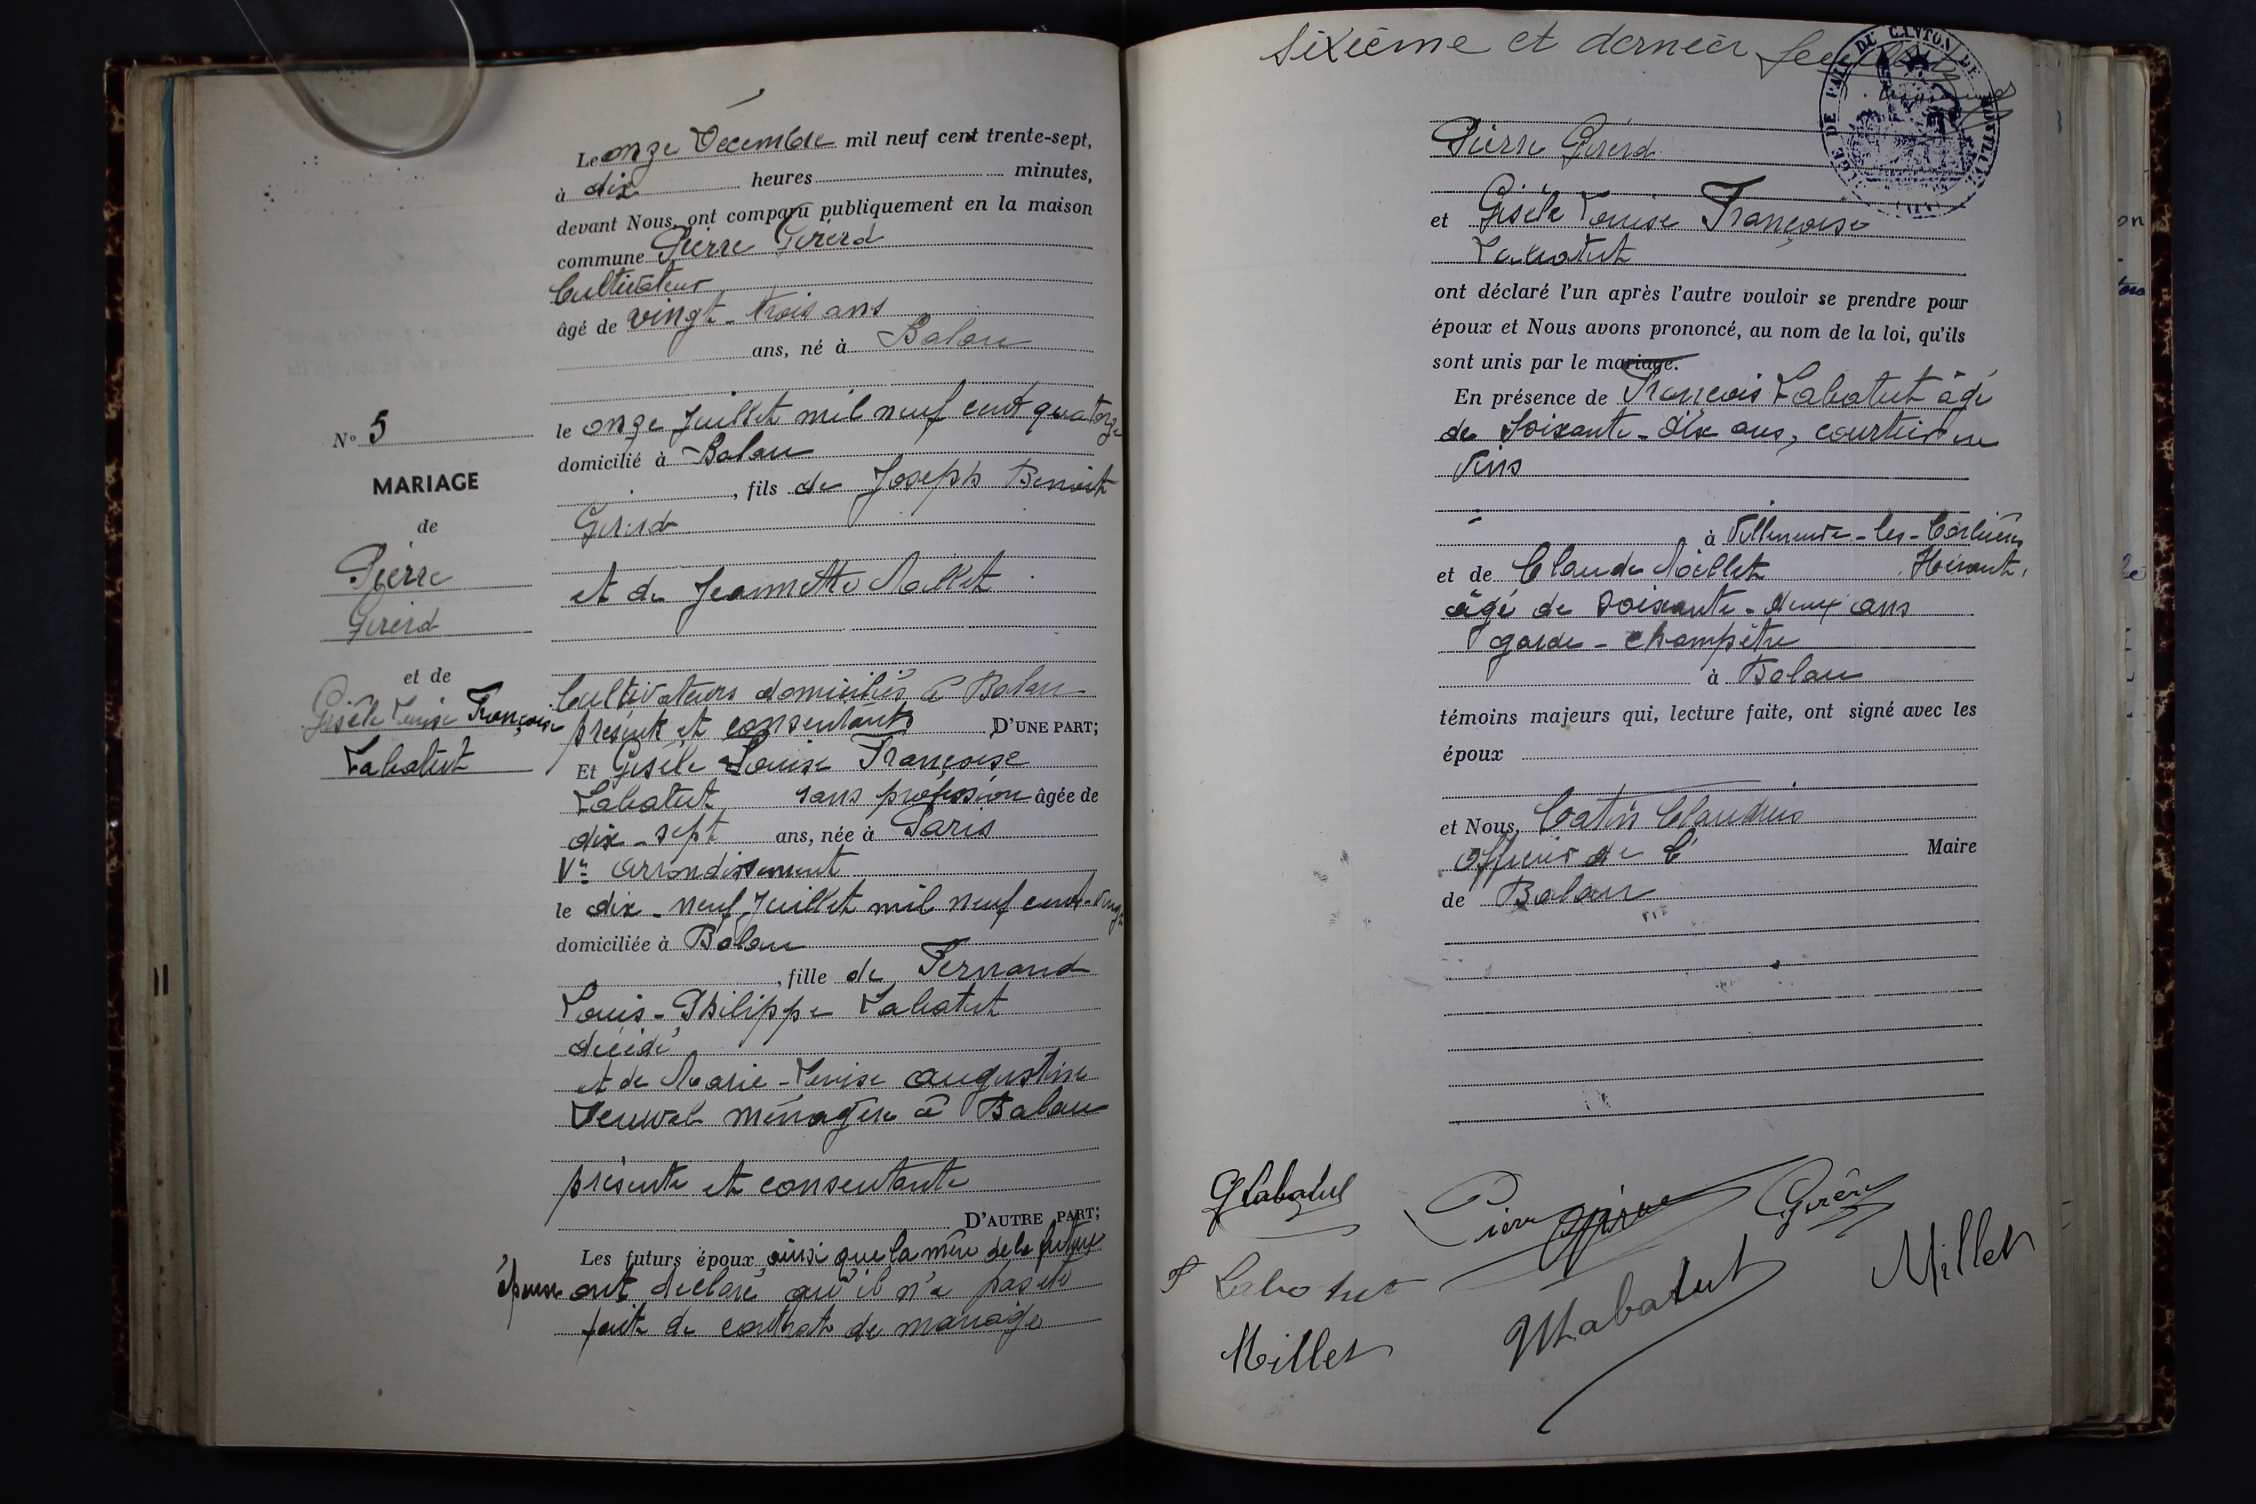 Le onze Décembre mil neuf cent trente-sept,
à dix heures minutes,
devant Nous, ont comparu publiquement en la maison
commune Pierre Girerd
Cultivateur
âgé de vingt-trois ans
ans, né à Balan
le onze Juillet mil neuf cent quatorze
domicilié à Balan
, fils de Joseph Benoit
Girerd
et de Jeannette Millet
Cultivateurs domiciliés à Balan
présents et consentants D'UNE PART;
Et Gisèle Louise Françoise
Labatut sans profession âgée de
dix-sept ans, née à Paris
Ve arrondissement
le dix-neuf Juillet mil neuf cent-vingt
domiciliée à Balan
, fille de Fernand
Louis-Philippe Labatut
décédé
et de Marie-Louise Augustine
ménagère à Balan
présente et consentante
D'AUTRE PART;
Les futurs époux ainsi que la mère de la future
épouse ont déclaré qu'il n'a pas été
fait de contrat de mariage
No 5
MARIAGE
de
Pierre
Girerd
et de
Gisèle Louise Françoise
Labatut
Sixième et dernier
Pierre Girerd
et Gisèle Louise Françoise
Labatut
ont déclaré l'un après l'autre vouloir se prendre pour
époux et Nous avons prononcé, au nom de la loi, qu'ils
sont unis par le mariage.
En présence de François Labatut âgé
de soixante-dix ans, courtier en
vins
à Villeneuve-les-Béziers
Hérault.
et de Claude Millet
âgé de soixante-deux ans
garde-champêtre
à Balan
témoins majeurs qui, lecture faite, ont signé avec les
époux
et Nous, Catin Claudius
officier de l' Maire
de Balan
GLabatut
Pierre Girerd
F Labatut
MLabatut
Millet
Millet